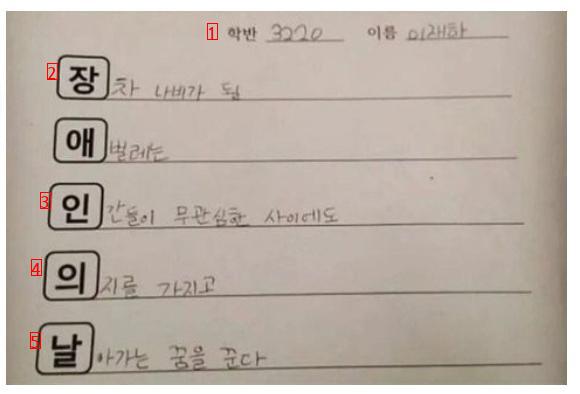 1 학반 3220 이름 이재하
2 장차 나비가 될
애벌레는
3 인간들이 무관심한 사이에도
4 의지를 가지고
5 날아가는 꿈을 꾼다